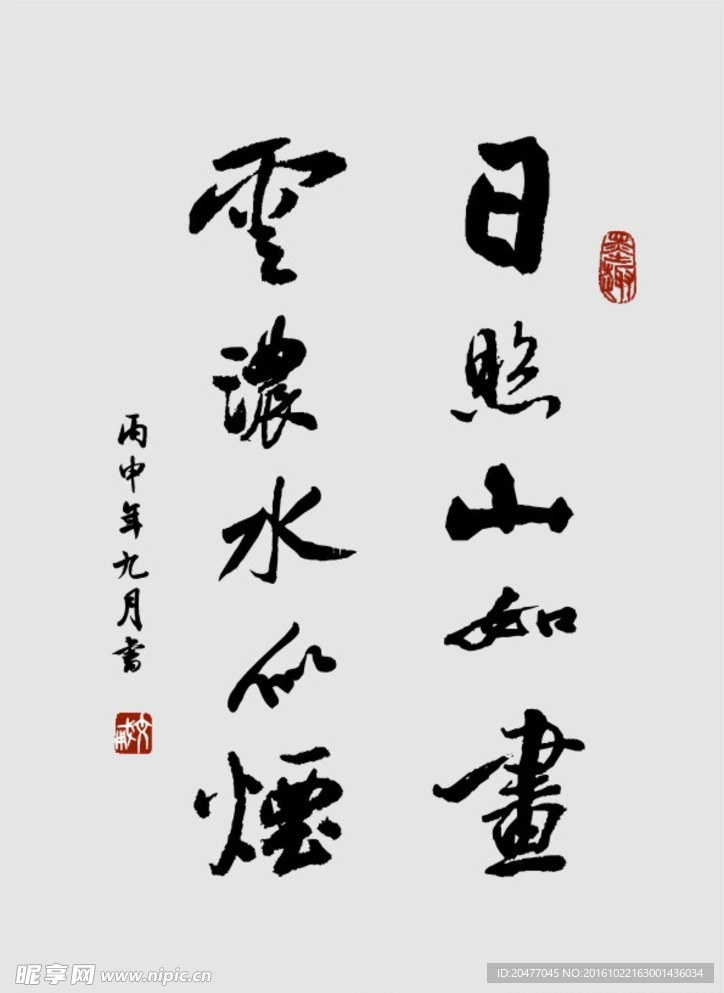 日照山如畫
雲濃水似煙
丙申年九月書
墨趣
昵享网 www.nipic.cn
ID:20477045 NO:20161022163001436034